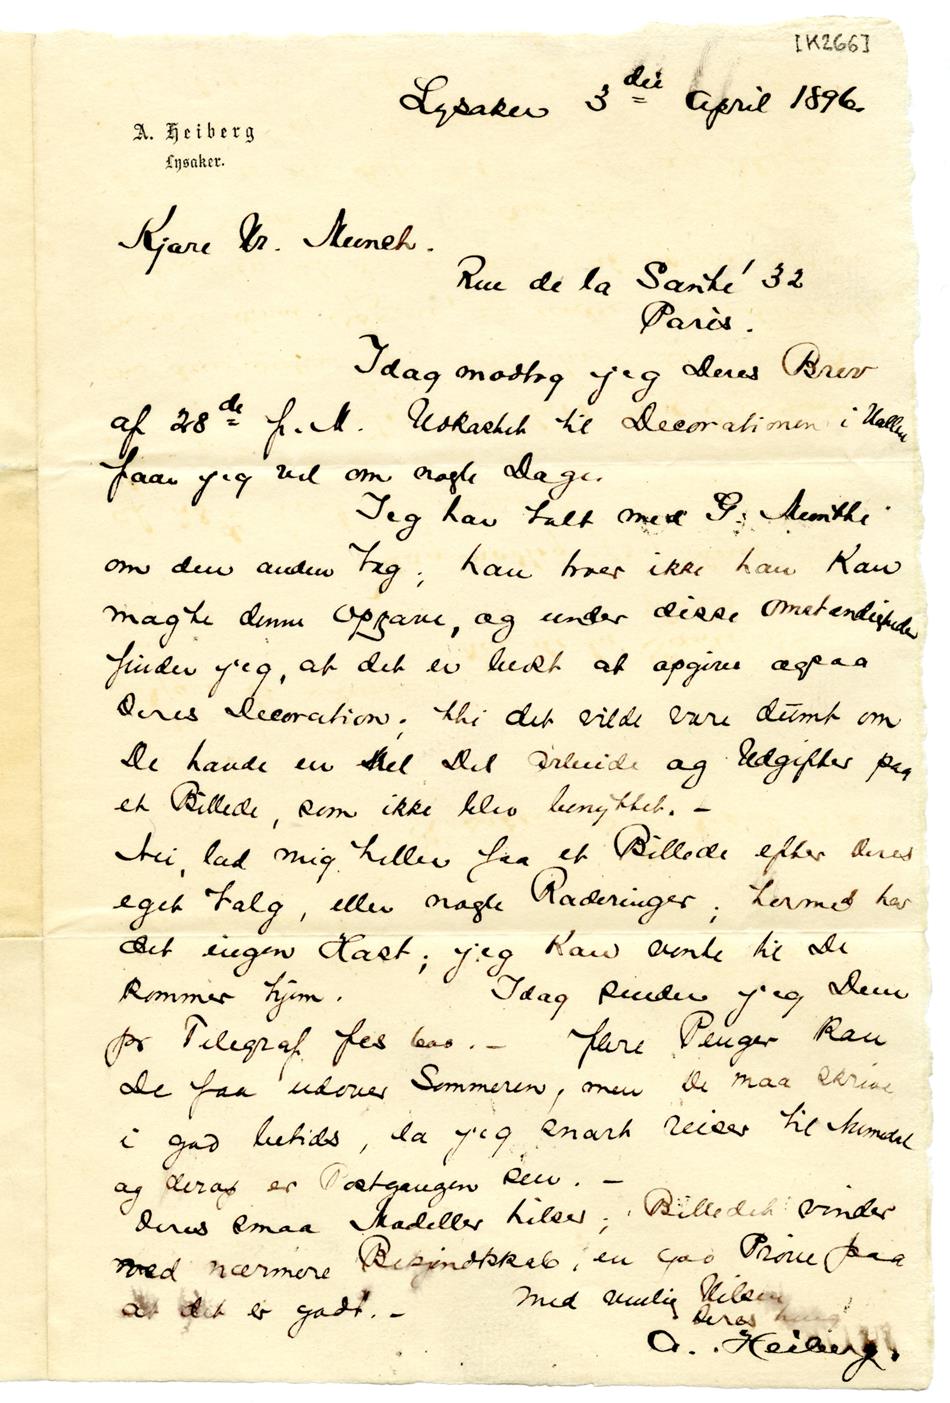 [K266]
Lysaker 3die April 1896.
A. Heiberg
Lysaker.
Kjære Hr. Munch.
Rue de la Santé 32
Paris.
Idag modtog jeg Deres Brev
af 28de f. M. Udkastet til Decorationen i Hallen
faar jeg vel om nogle Dage.
Jeg har talt med G. Munthe
om den anden Ting; han troer ikke han kan
magte denne Opgave, og under disse Omstændigheder
finder jeg, at det er bedst at opgive ogsaa
Deres Decoration; thi det vilde være dumt om
De havde en hel Del Arbeide og Udgifter paa
et Billede, som ikke blev benyttet. –
Nei, lad mig heller faa et Billede efter Deres
eget Valg, eller nogle Raderinger; hermed har
det ingen Hast; jeg kan vente til De
kommer hjem. Idag sender jeg Dem
pr Telegraf fcs 600. – flere Penger kan
De faa udover Sommeren, men De maa skrive
i god betids, da jeg snart reiser til Numedal
og derop er Postgangen sen. –
Deres smaa Modeller hilser; Billedet vinder
ved nærmere Bekjendtskab; en god Prøve paa
at det er godt. – Med venlig Hilsen
Deres
A. Heiberg.